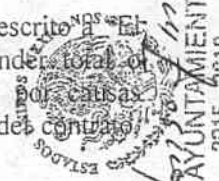 escrito a "El
nder total o
por causas
del contrato
ESTADOS
AYUNTAMIENT